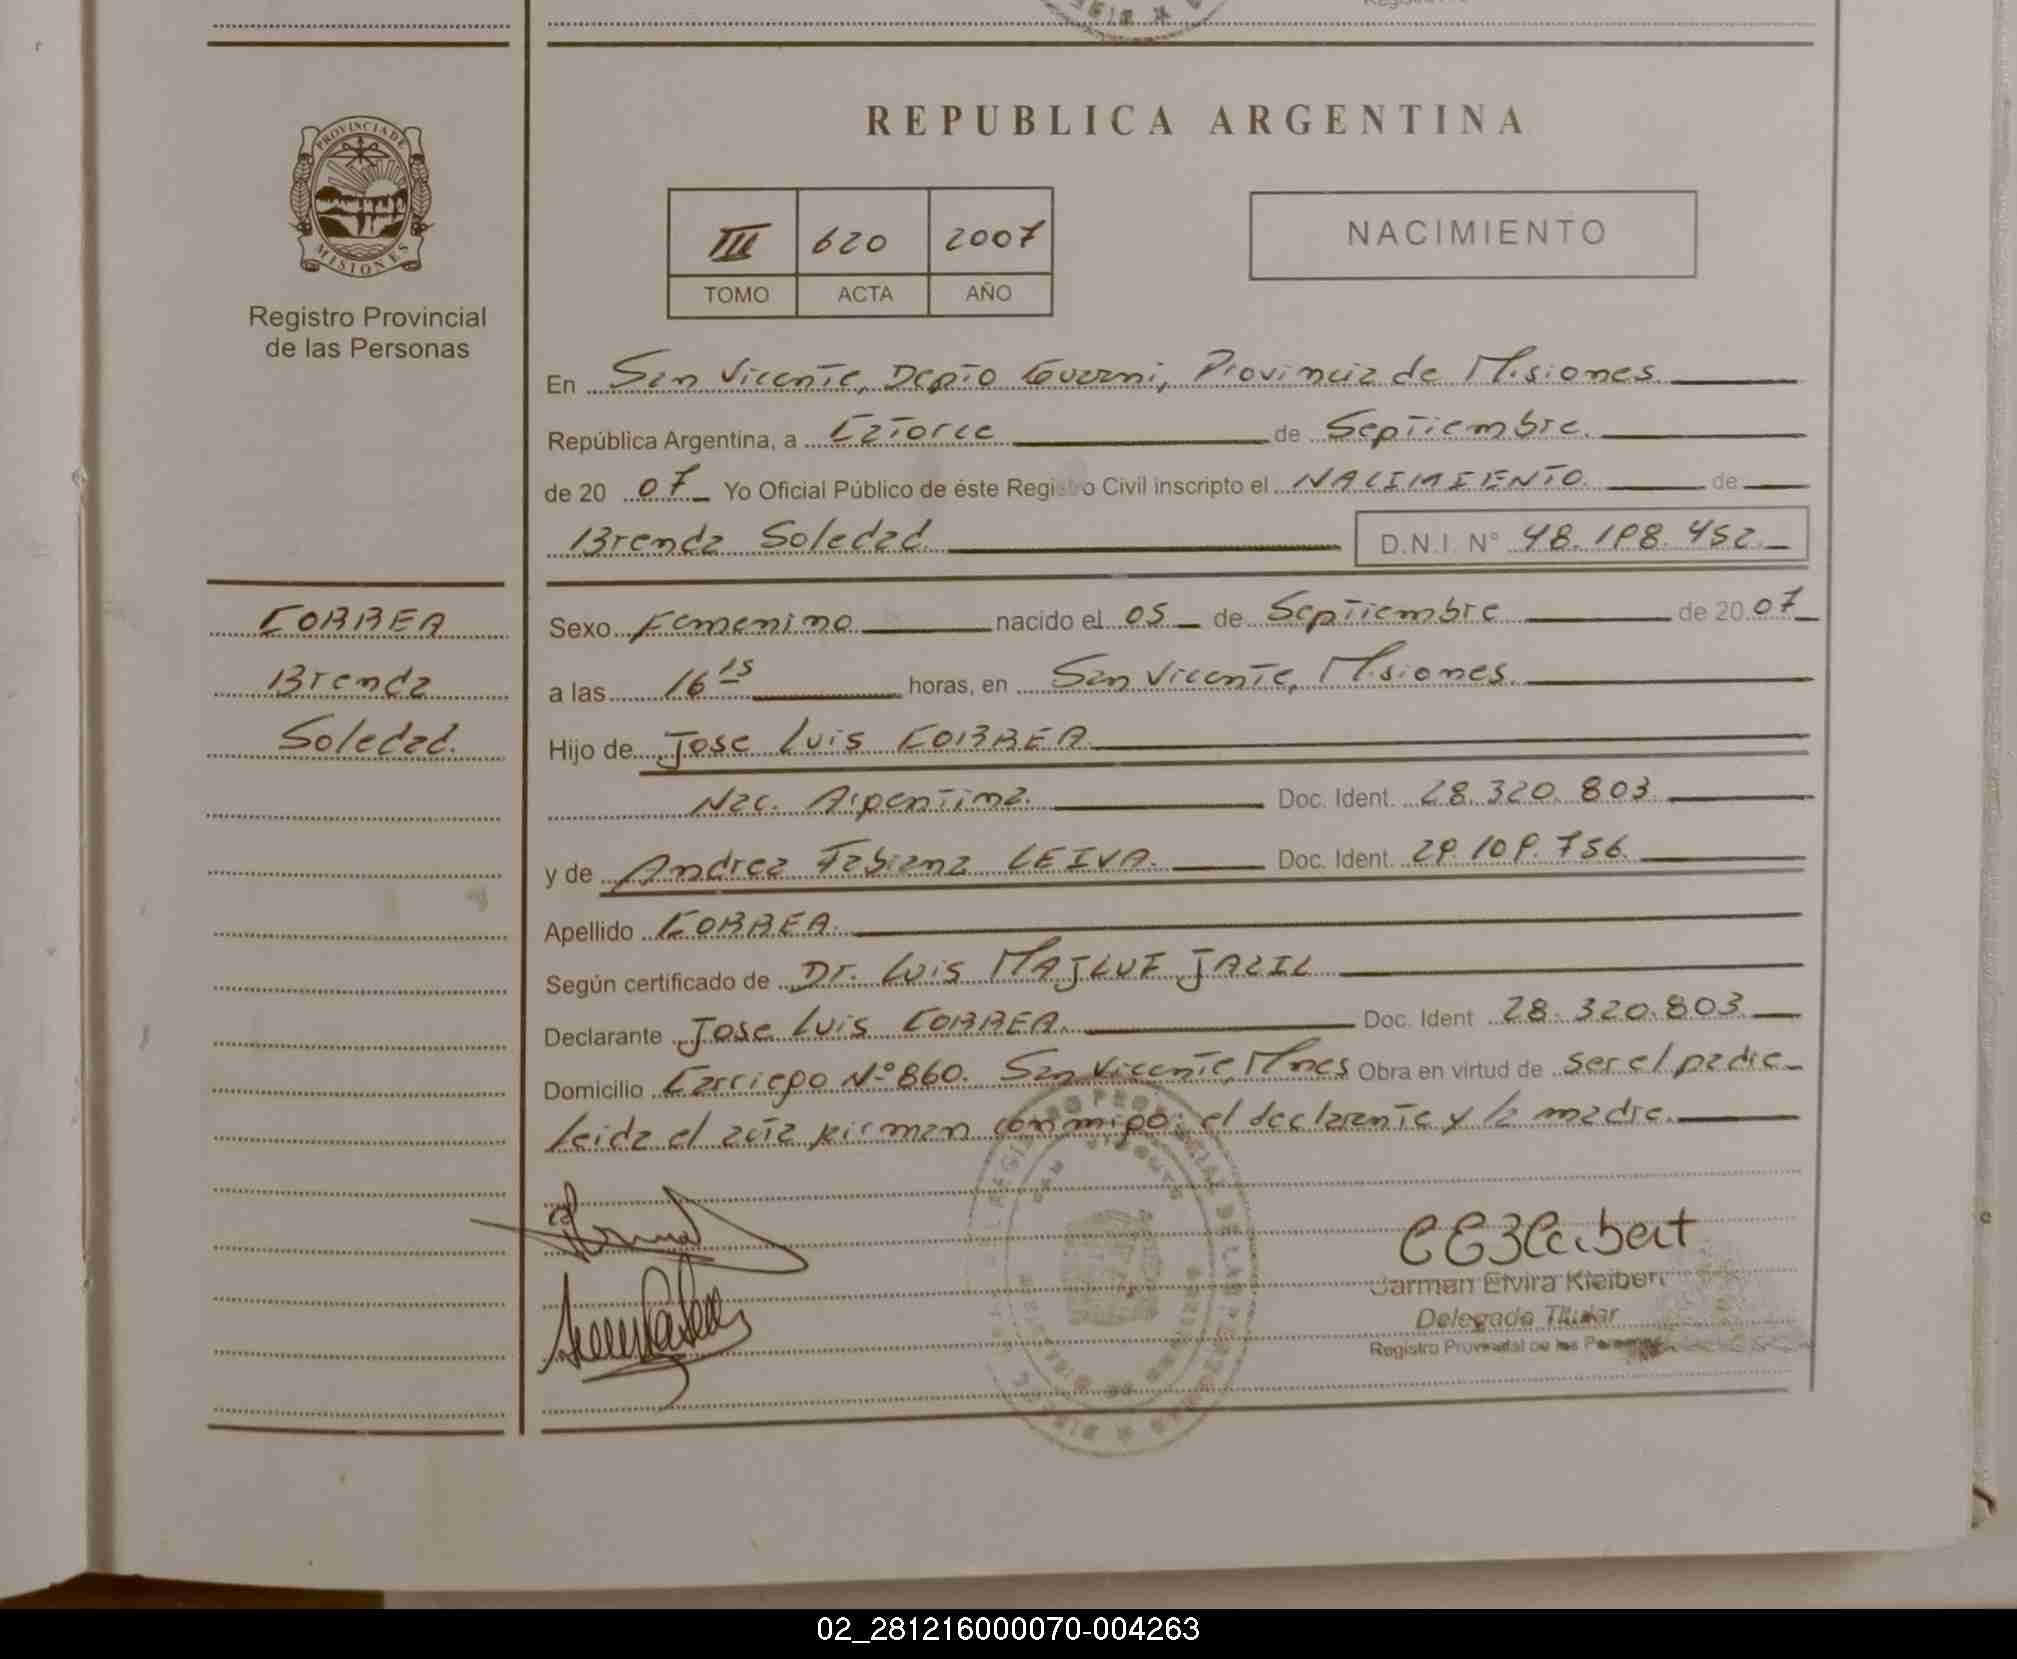 REPUBLICA ARGENTINA
PROVINCIA DE
MISIONES
Registro Provincial
de las Personas
III 620 2007
TOMO ACTA AÑO
NACIMIENTO
En San Vicente, Depto Guarani, Provincia de Misiones
República Argentina, a Catorce de Septiembre.
de 20 07 Yo Oficial Público de éste Registro Civil inscripto el NACIMIENTO. de
Brenda Soledad D.N.I. N° 48.198.452.
CORREA
Brenda
Soledad.
Sexo Femenino nacido el 05 de Septiembre de 20 07
a las 16 15 horas, en San Vicente, Misiones.
Hijo de Jose Luis CORREA.
Nac. Argentina. Doc. Ident. 28.320.803
y de Andrea Fabiana LEIVA. Doc. Ident. 29.109.756.
Apellido CORREA.
Según certificado de Dr. Luis MAJLUF JALIL
Declarante Jose Luis CORREA. Doc. Ident 28.320.803
Domicilio Carriego Nº 860. San Vicente, Mnes Obra en virtud de ser el padre
Leida el acta firman conmigo: el declarante y la madre.
Carmen Elvira Kleibert
Delegada Titular
Registro Provincial de las Personas
02_281216000070-004263